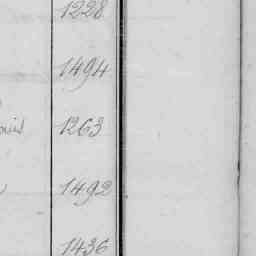 1228
1494
1263
1492
1436